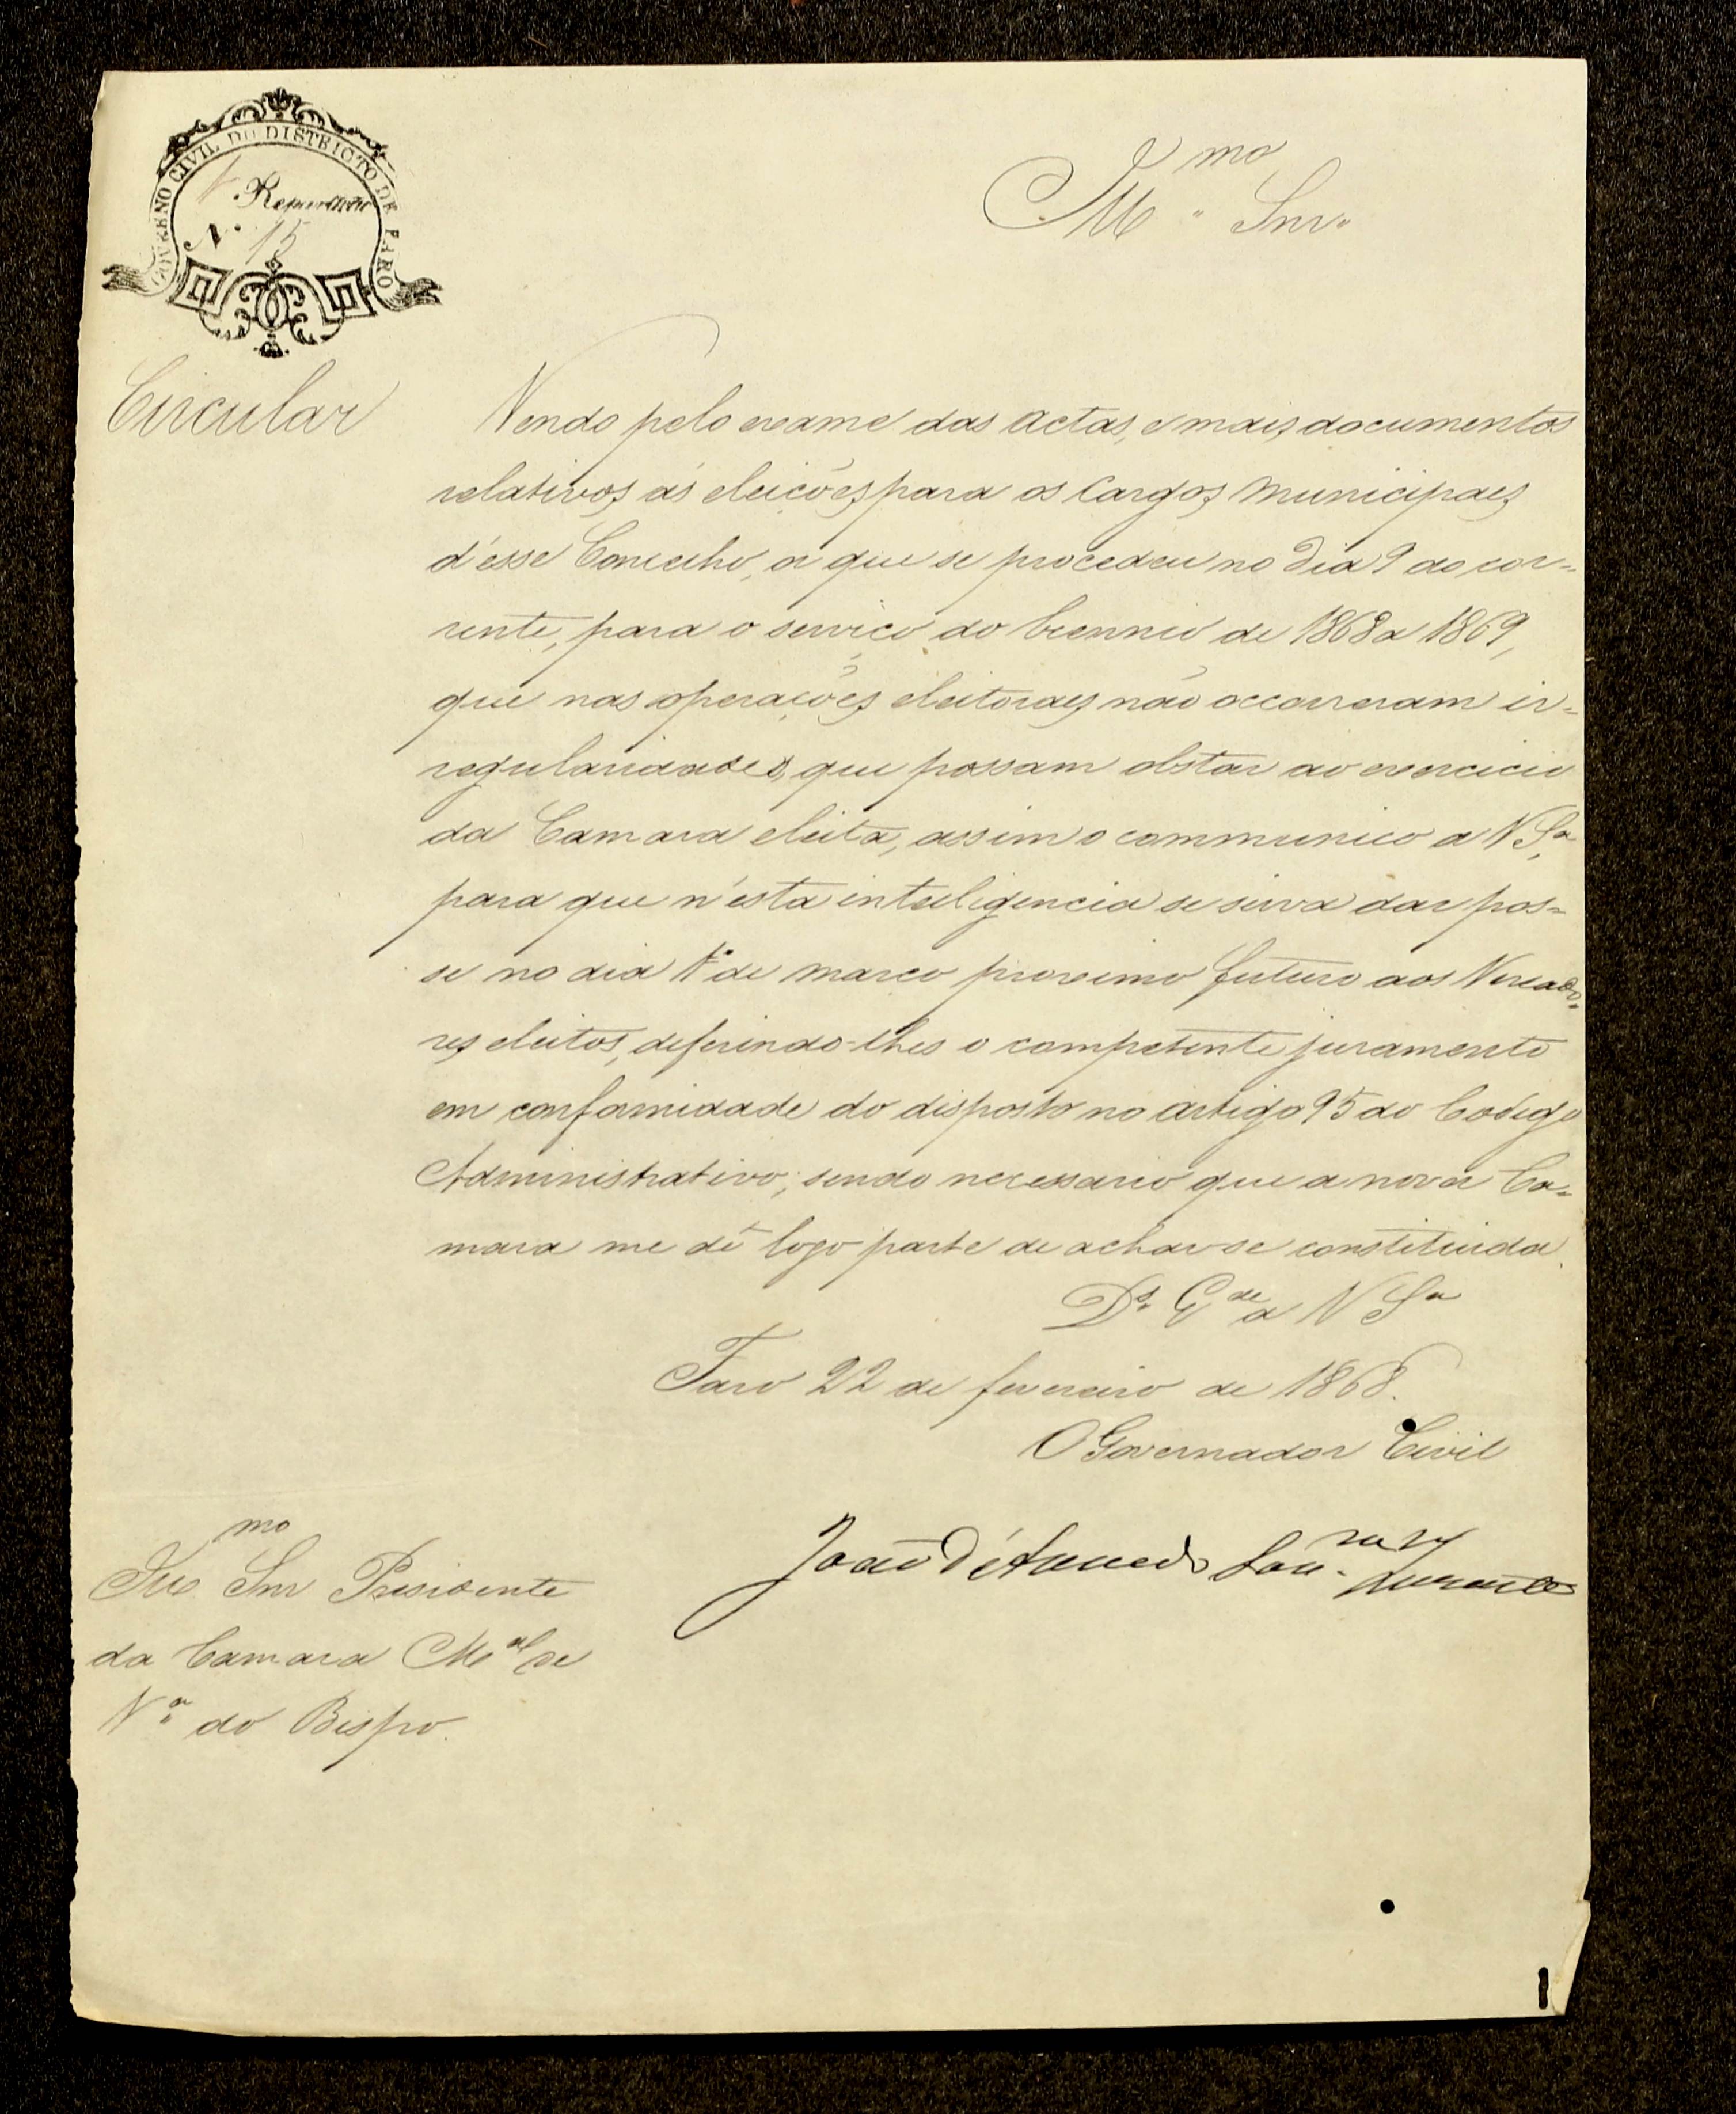 GOVERNO CIVIL DO DISTRICTO DE FARO
1ª Repartição
N.º 15
Illmo Snr.
Circular
Vendo pelo exame das actas, e mais documentos
relativos ás eleições para os Cargos Municipaes
d'esse Concelho, a que se procedeu no dia 9 do cor-
rente, para o serviço do biennio de 1868 a 1869,
que nas operações eleitoraes não occorreram ir-
regularidades que possam obstar ao exercicio
da Camara eleita, assim o communico a V Sª,
para que n'esta intelligencia se sirva dar pos-
se no dia 1º de março proximo futuro aos Vereado-
res eleitos, deferindo-lhes o competente juramento
em conformidade do disposto no artigo 95 do Codigo
Administrativo; sendo necessario que a nova Ca-
mara me dê logo parte de achar-se constituida.
Ds. Gde a V Sª
Faro 22 de fevereiro de 1868.
O Governador Civil
João d'
Illmo Snr Presidente
da Camara Mal de
Vª do Bispo.